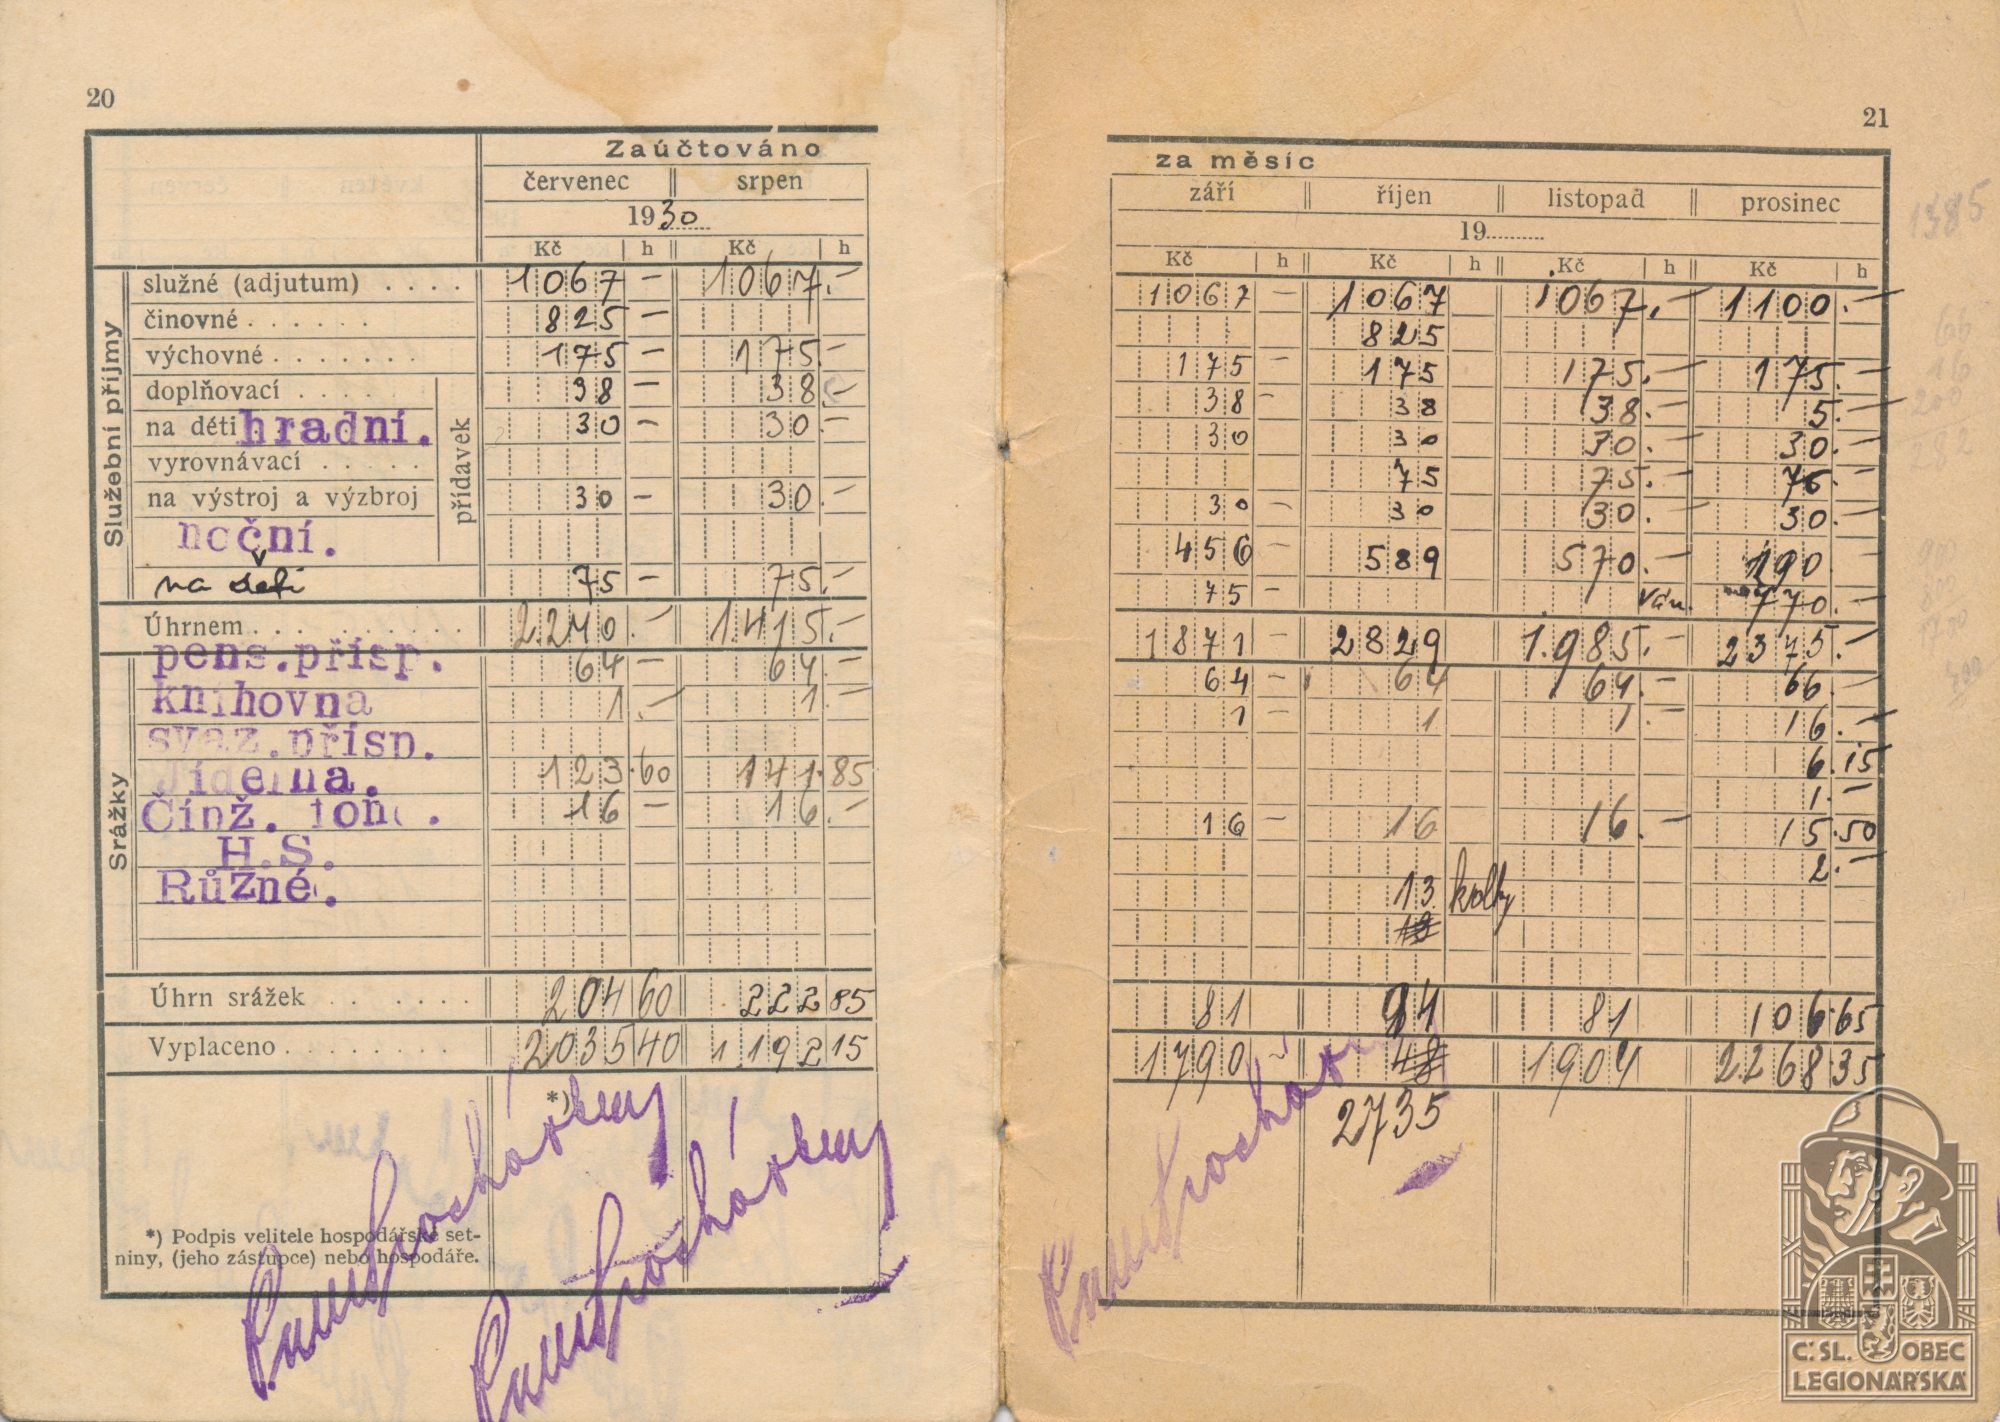 20
Zaúčtováno
červenec srpen
1930
Kč h Kč h
Služební příjmy
služné (adjutum) . . . . 1067 — 1067.—
činovné . . . . . . 825 —
výchovné . . . . . . . 175 — 175.—
přídavek
doplňovací . . . . . . 38 — 38.—
na děti hradní. 30 — 30.—
vyrovnávací . . . . .
na výstroj a výzbroj 30 — 30.—
noční.
na děti 75 — 75.—
Úhrnem . . . . . . . . . . 2.240.— 1.415.—
Srážky
pens.přísp. 64 — 64 —
knihovna 1.— 1.—
svaz.přísp.
Jídelna. 123.60 141.85
Činž. fond. 16 — 16.—
H.S.
Různé.
Úhrn srážek . . . . . . . 204 60 222 85
Vyplaceno . . . . . . . . 2035 40 1192 15
*)
*) Podpis velitele hospodářské set-
niny, (jeho zástupce) nebo hospodáře.
21
za měsíc
září říjen listopad prosinec
19
Kč h Kč h Kč h Kč h
1067 — 1067 1067.— 1100.—
825
175 — 175 175.— 175.—
38 — 38 38.— 5.—
30 30 30.— 30.—
75 75.— 76.
30 — 30 30.— 30.—
456 — 589 570.— 190
75 — ván. 770.—
1871 — 2829 1.985.— 2375.—
64 — 64 64.— 66 —
1 — 1 1.— 16.—
6.15
1.—
16 — 16 16.— 15.50
2.—
13 kolky
81 94 81 106.65
1790 48 1904 2.268.35
2735
1385
Č. SL. OBEC
LEGIONÁŘSKÁ